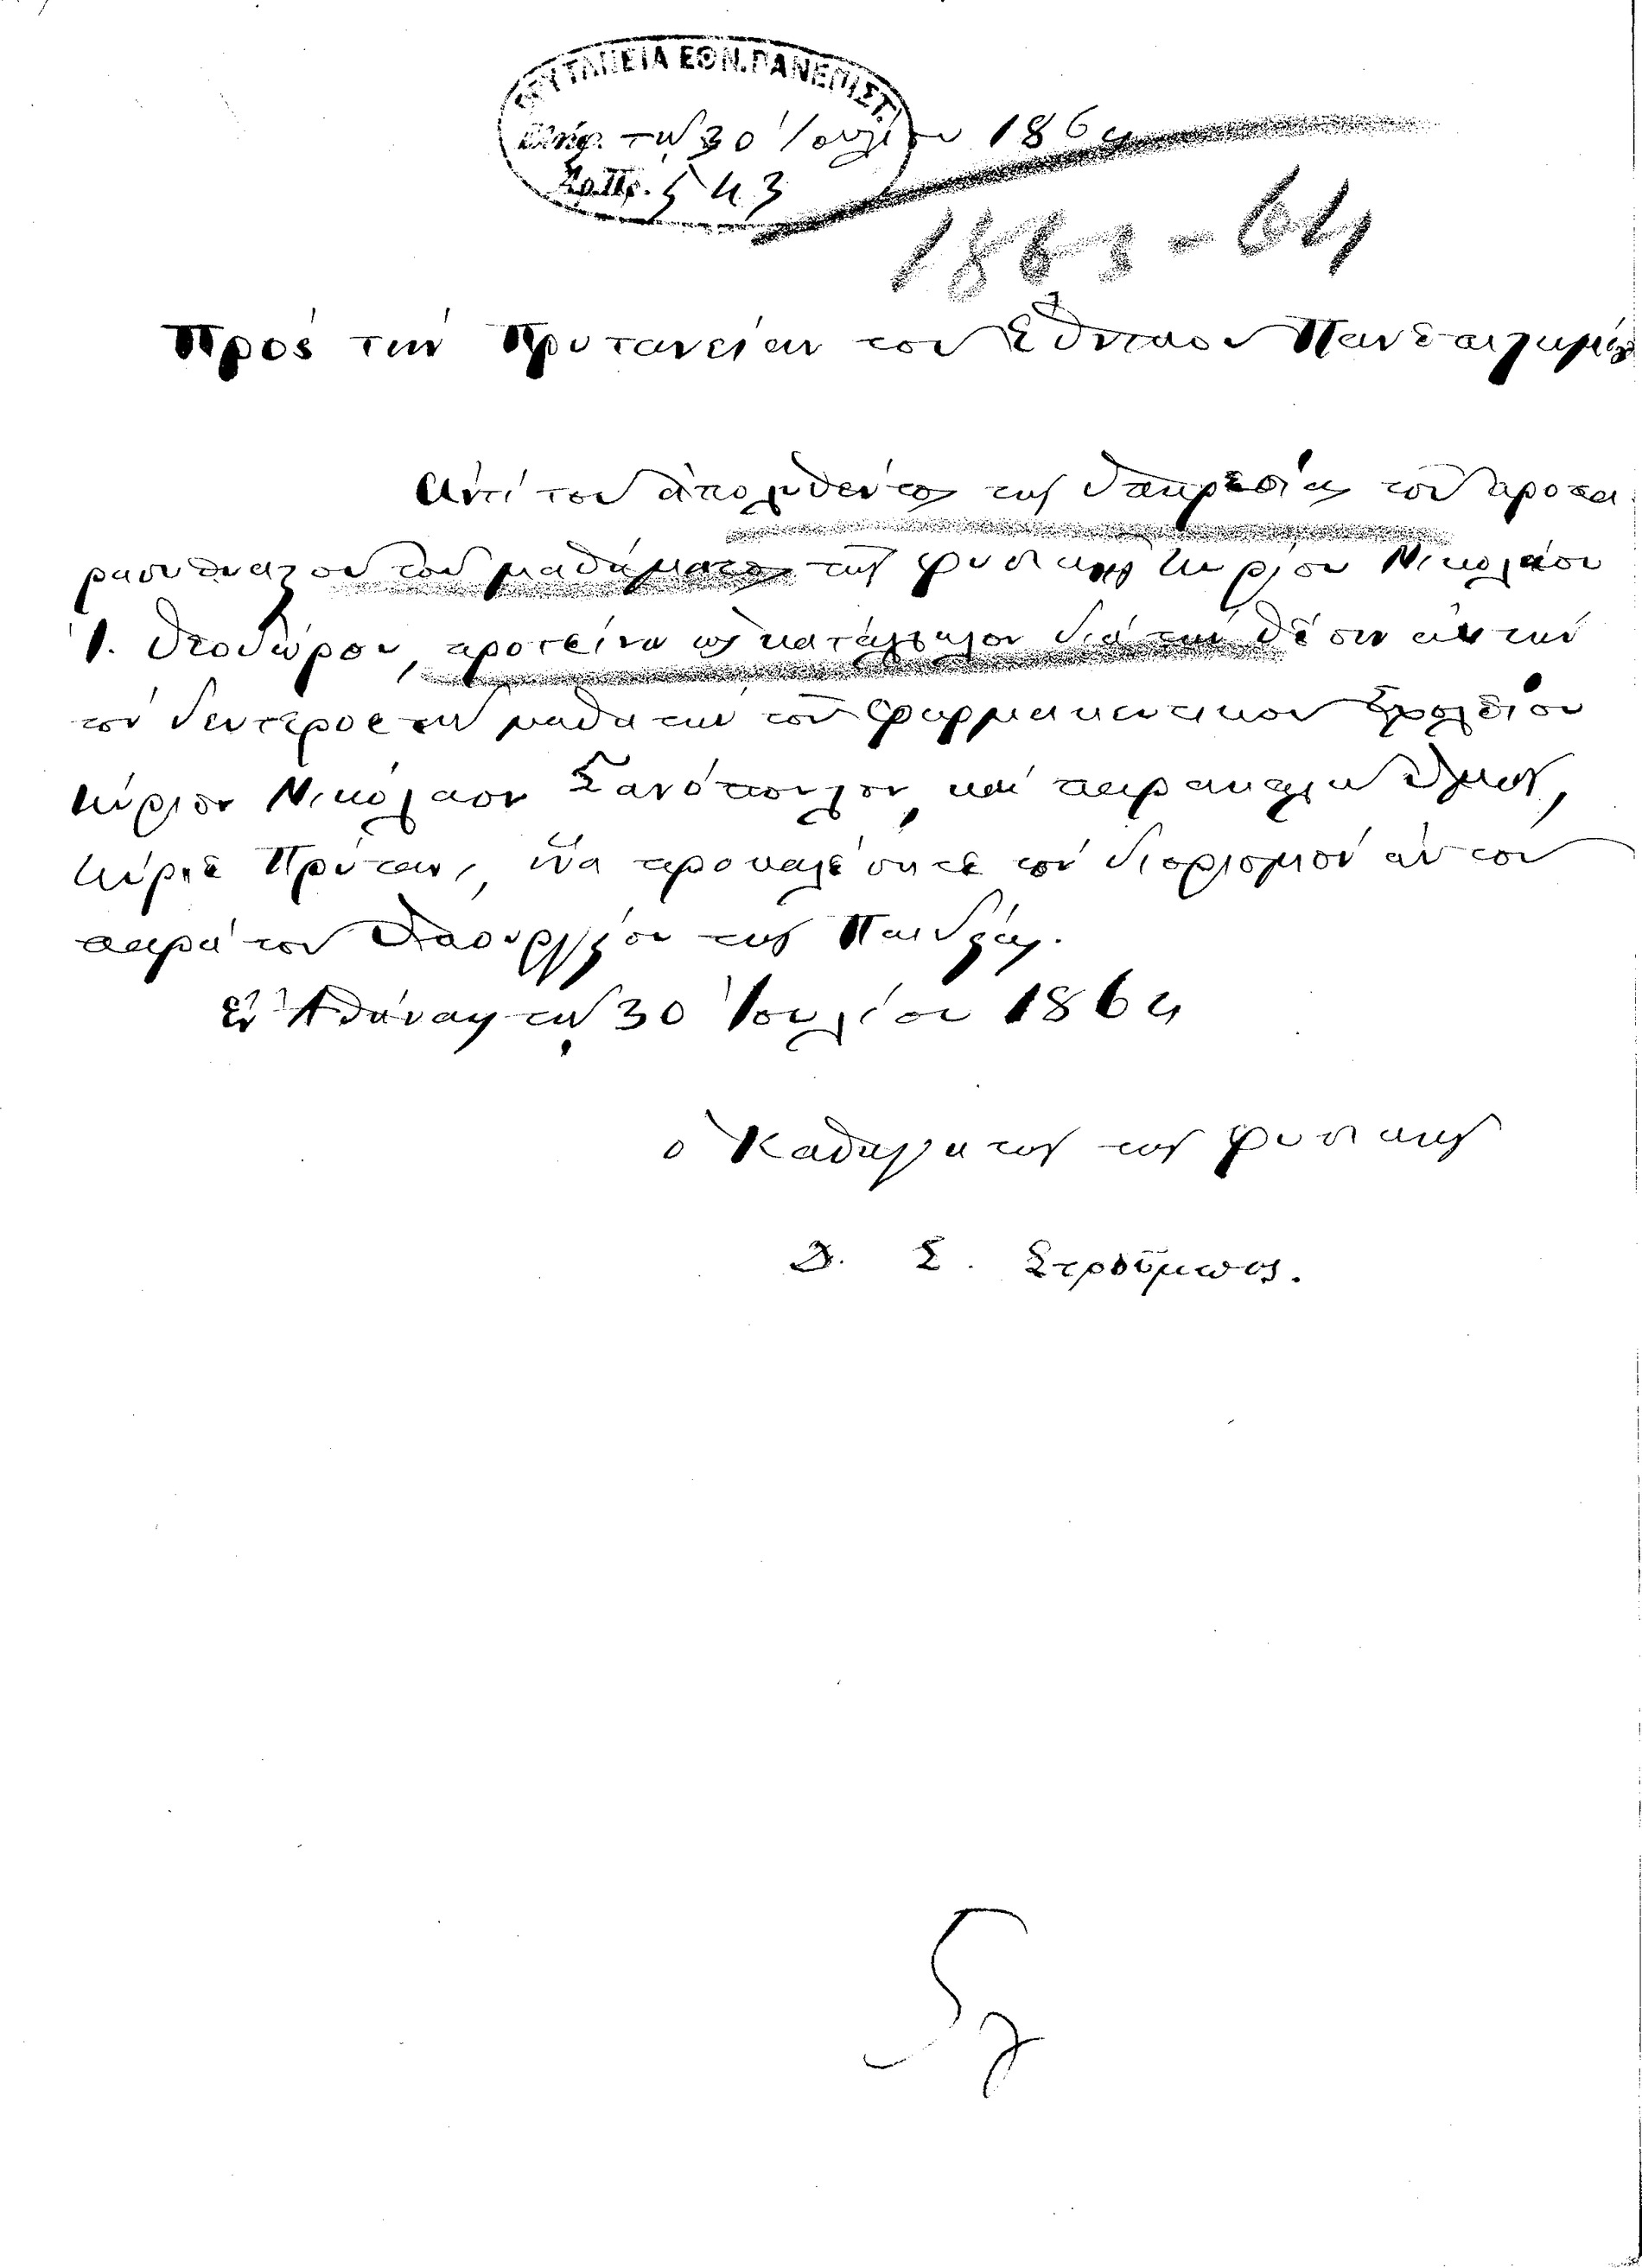 ΠΡΥΤΑΝΕΙΑ ΕΘΝ. ΠΑΝΕΠΙΣΤ.
τῇ 30 Ἰουλίου 1864
Ἀρ. Πρ. 543
1863-64
Πρὸς τὴν Πρυτανείαν τοῦ Ἐθνικοῦ Πανεπιστημίου
Ἀντὶ τοῦ ἀπολυθέντος τῆς ὑπηρεσίας τοῦ προπα
ρασκευαστοῦ τοῦ μαθήματος τῆς φυσικῆς Κυρίου Νικολάου
Ι. Θεοδώρου, προτείνω ὡς κατάλληλον διὰ τὴν θέσιν αὐτὴν
τὸν δευτεροετῆ μαθητὴν τοῦ Φαρμακευτικοῦ Σχολείου
Κύριον Νικόλαον Σανόπουλον, καὶ παρακαλῶ Ὑμᾶς,
Κύριε Πρύτανι, ἵνα προκαλέσητε τὸν διορισμὸν αὐτοῦ
παρὰ τοῦ Ὑπουργείου τῆς Παιδείας.
Ἐν Ἀθήναις τῇ 30 Ἰουλίου 1864
ὁ Καθηγητὴς τῆς φυσικῆς
Δ. Σ. Στρούμπος.